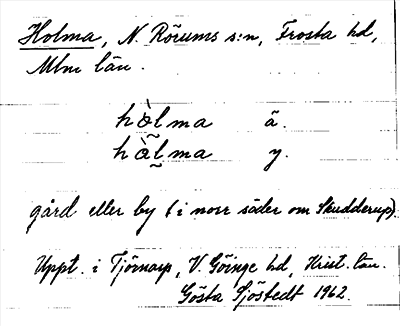 Holma, N. Rörums s:n, Frosta hd,
Mlm län.
hòl̰ma ä.
hòl̰ma y.
gård eller by (i norr söder om Skudderup).
Uppt. i Tjörnarp, V. Göinge hd, Krist. län.
Gösta Sjöstedt 1962.